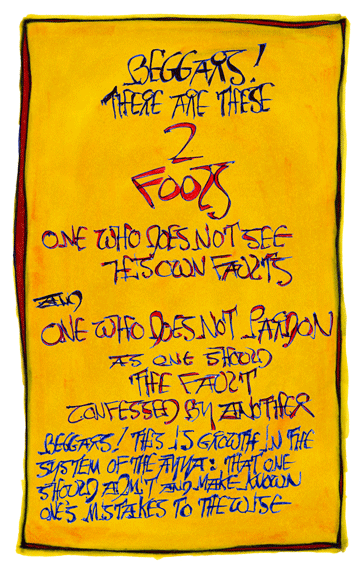 BEGGARS!
THERE ARE THESE
2
FOOLS
ONE WHO DOES NOT SEE
HIS OWN FAULTS
AND
ONE WHO DOES NOT PARDON
AS ONE SHOULD
THE FAULT
CONFESSED BY ANOTHER
BEGGARS! THIS IS GROWTH IN THE
SYSTEM OF THE AYYA: THAT ONE
SHOULD ADMIT AND MAKE KNOWN
ONE'S MISTAKES TO THE WISE